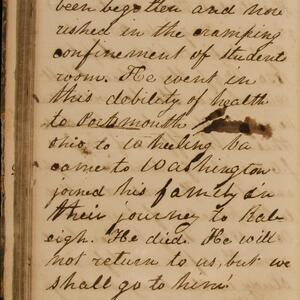 been begotten and nou
rished in the cramping
confinement of student
room. He went in
this dobility of health
to Portsmouth
Ohio to Wheeling Va
came to Washington
joined his family in
their journey to Ral
eigh. He died. He will
not return to us, but we
shall go to him!